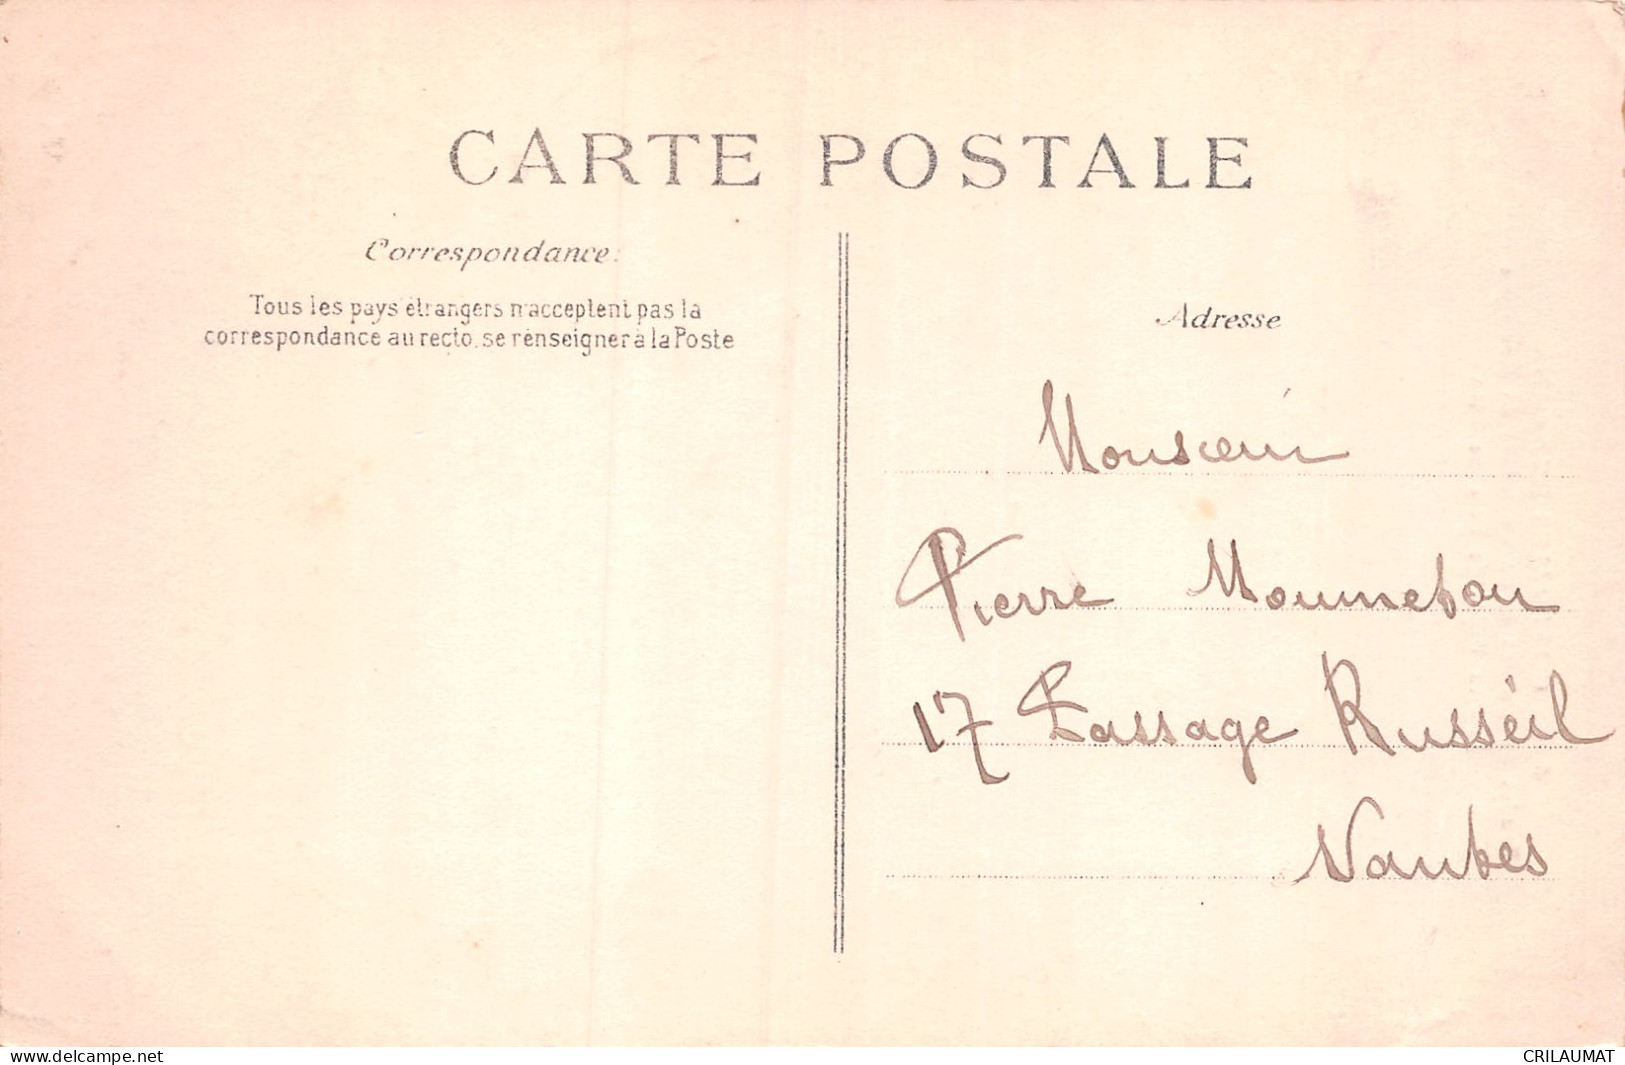 CARTE POSTALE
Correspondance:
Tous les pays étrangers n'acceptent pas la
correspondance au recto, se renseigner à la Poste
Adresse
Monsieur
Pierre
17 Passage Russeil
Nantes
www.delcampe.net
CRILAUMAT